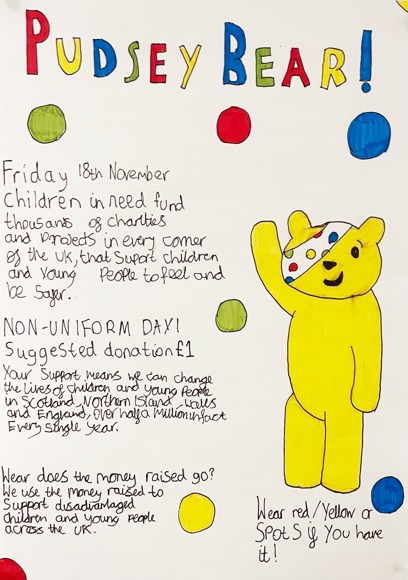 PUDSEY BEAR!
Friday 18th November
Children in need fund
thousans of charlties
and Projects in every corner
of the UK, that Suport children
and young People to feel and
be Safer.
NON-UNIFORM DAY!
Suggested donation £1
Your Support means we can change
the lives of children and young People
in Scotland, Northern Island, Walls
and England, over half a Million infact
Every Single year.
Wear does the money raised go?
We use the money raised to
Support disadvantaged
children and Young People
across the UK.
Wear red/Yellow or
SPotS if You have
it!